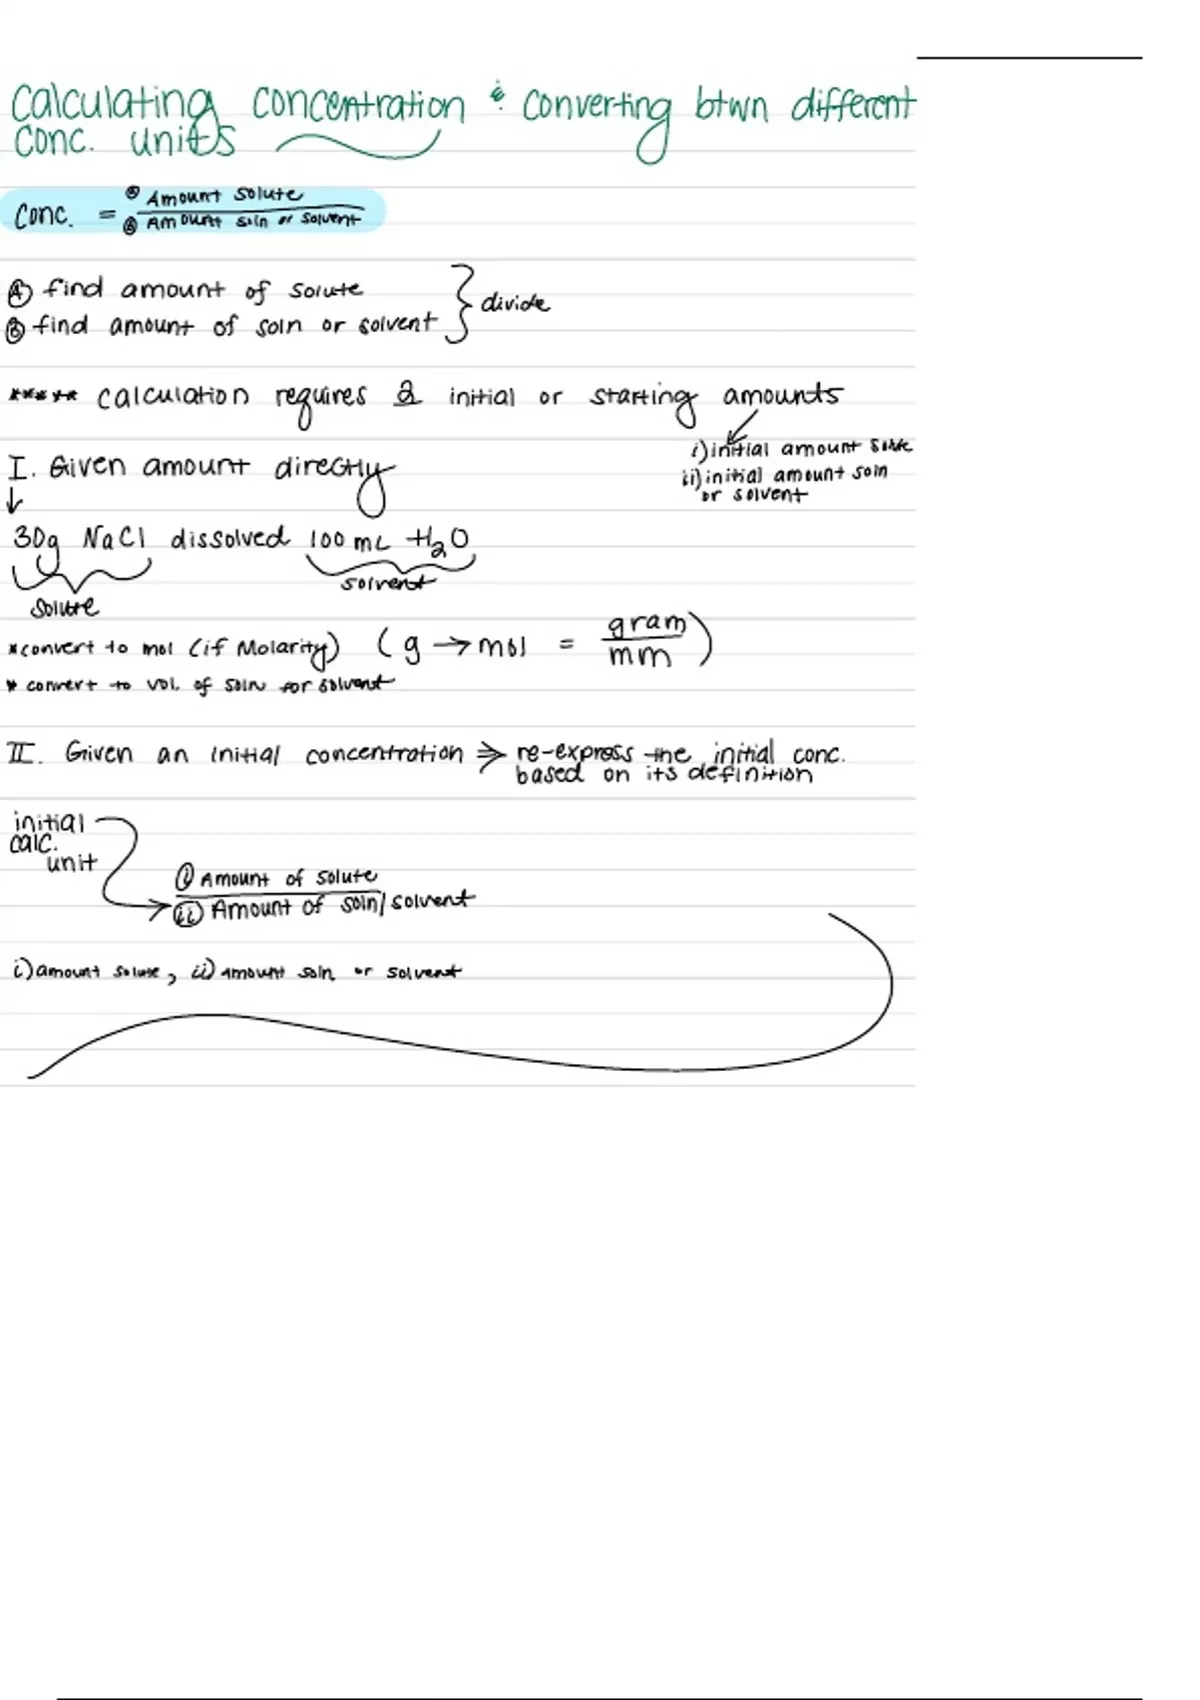 Calculating concentration & converting btwn different
conc. units
conc. = Ⓐ Amount solute
Ⓑ Amount soln or solvent
Ⓐ find amount of solute
Ⓑ find amount of soln or solvent } divide
***** calculation requires 2 initial or starting amounts
i) initial amount solute
ii) initial amount soln
or solvent
I. Given amount directly
↓
30g NaCl dissolved 100 mL H₂O
solute
solvent
*convert to mol (if Molarity) (g → mol = gram
mm)
* convert to vol. of soln for solvent
II. Given an initial concentration ⇒ re-express the initial conc.
based on its definition
initial
calc.
unit
ⓘ Amount of solute
ⓘⓘ Amount of soln/solvent
i) amount solute, ii) amount soln or solvent